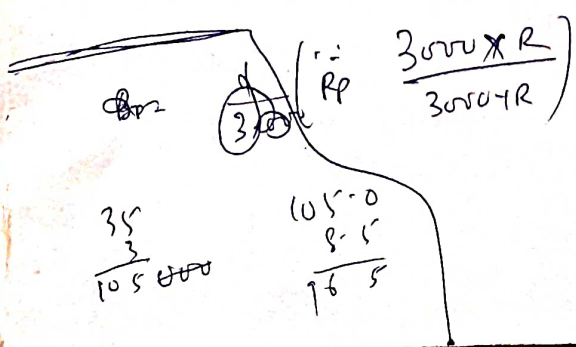 (∵ Rp 3000 × R / 3000+R)
35
3
105 000
105.0
8.5
96 5